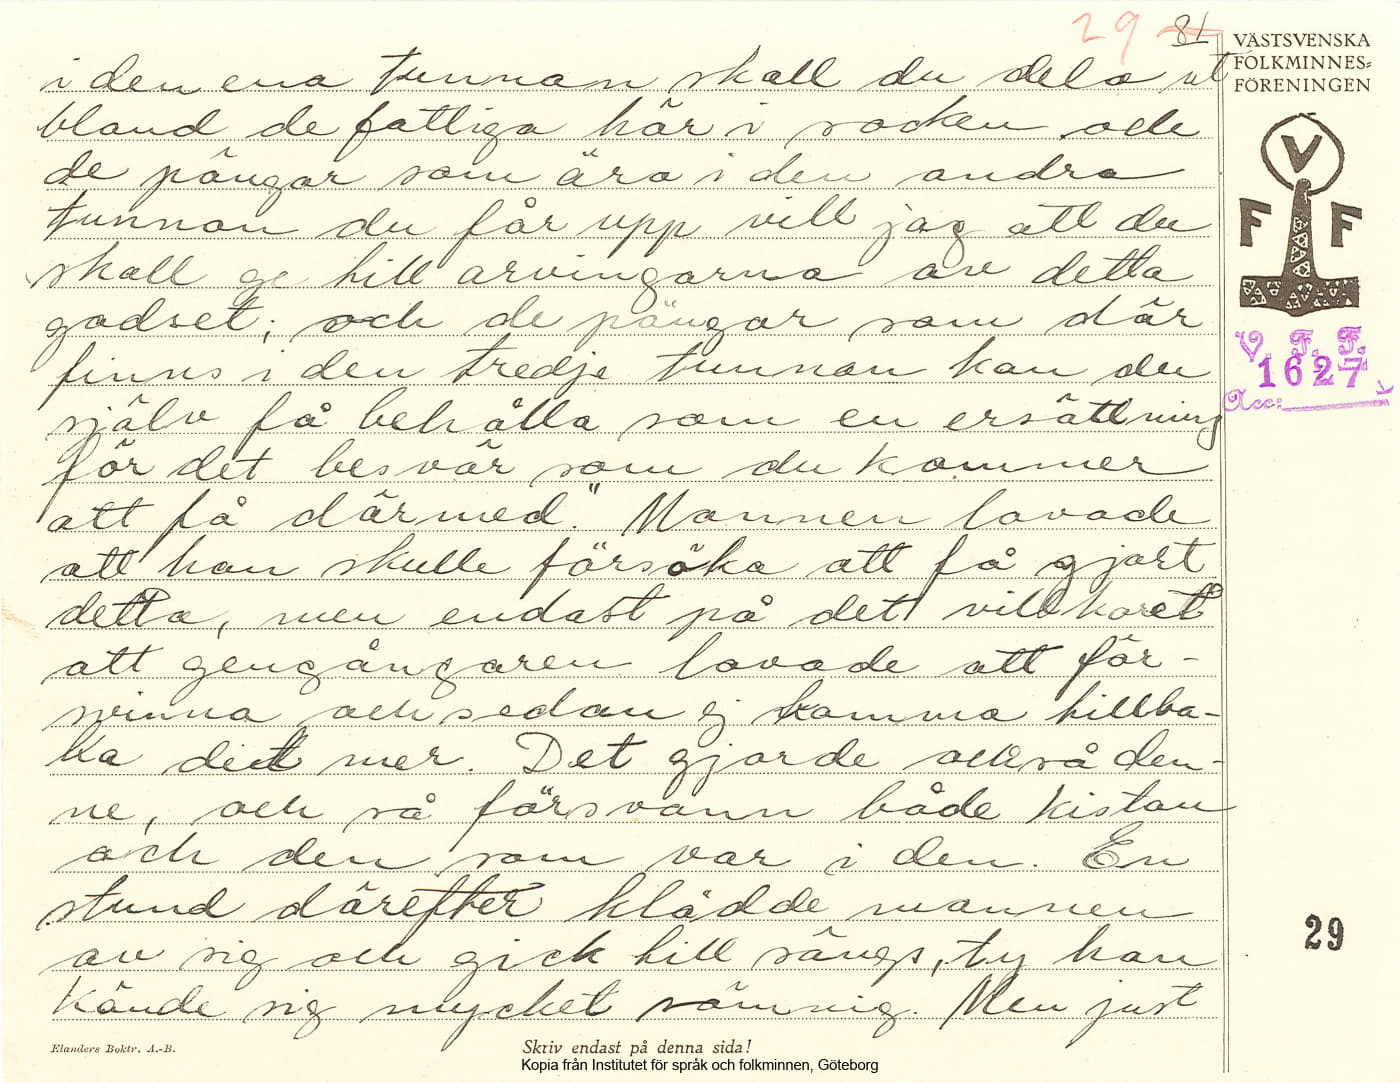 29 81
VÄSTSVENSKA
FOLKMINNES-
FÖRENINGEN
V
F F
V. F. F.
1627
Acc:
i den ena tunnan skall du dela ut
bland de fattiga här i socken och
de pängar som ära i den andra
tunnan du får upp vill jag att du
skall ge till arvingarna av detta
godset; och de pängar som där
finns i den tredje tunnan kan du
själv få behålla som en ersättning
för det besvär som du kommer
att få därmed." Mannen lovade
att han skulle försöka att få gjort
detta, men endast på det villkoret
att gengångaren lovade att för-
svinna och sedan ej komma tillba-
ka dit mer. Det gjorde också den-
ne, och så försvann både kistan
och den som var i den. En
stund därefter klädde mannen
av sig och gick till sängs, ty han
kände sig mycket sömnig. Men just
29
Elanders Boktr. A.-B.
Skriv endast på denna sida!
Kopia från Institutet för språk och folkminnen, Göteborg